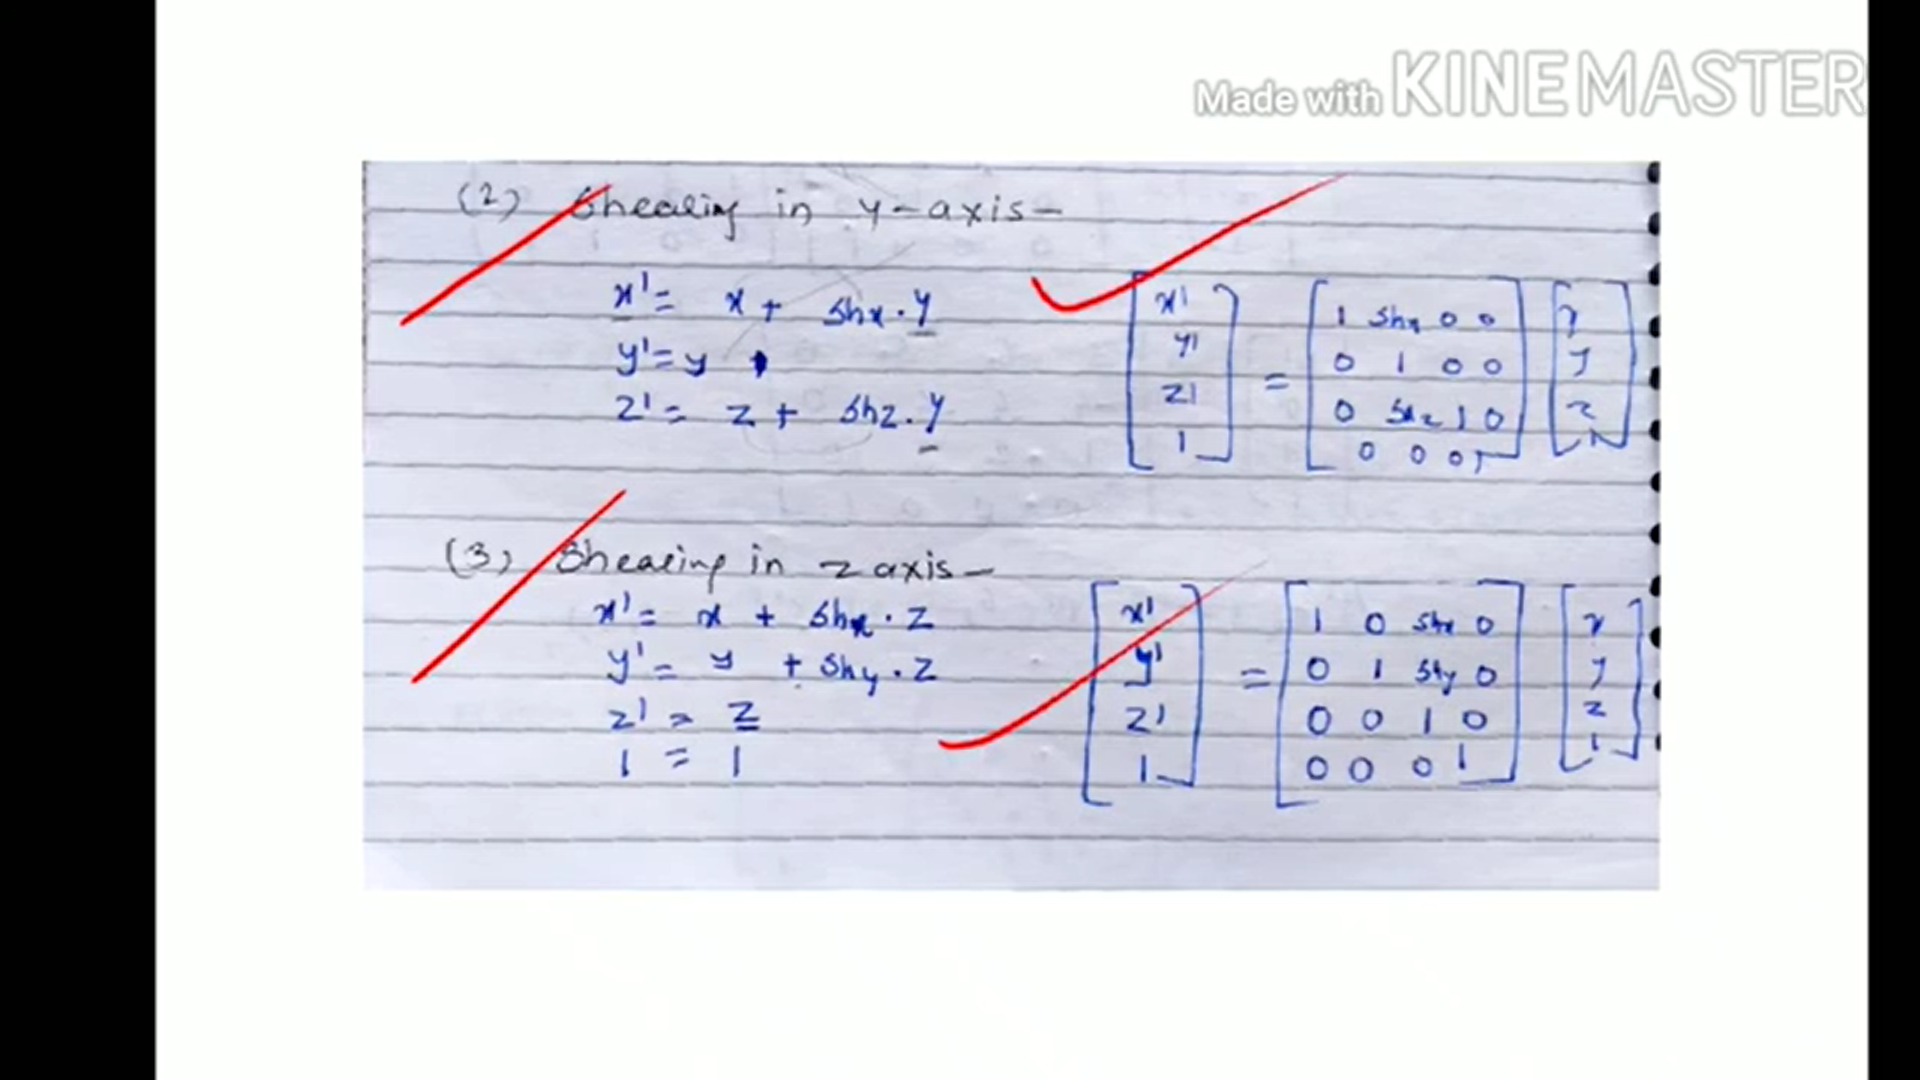 Made with KINEMASTER
(2) Shearing in y-axis-
x' = x + shx.y
y' = y
z' = z + shz.y
[x' y' z' 1] = [1 shx 0 0
0 1 0 0
0 shz 1 0
0 0 0 1] [x y z 1]
(3) Shearing in z axis-
x' = x + shx.z
y' = y + shy.z
z' = z
1 = 1
[x' y' z' 1] = [1 0 shx 0
0 1 shy 0
0 0 1 0
0 0 0 1] [x y z 1]